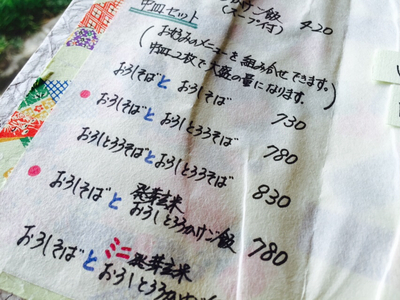 かけゴ飯
(スープ付) 420
中皿セット
(お好みのメニューを組み合せできます。
中皿2枚で大盛の量になります。)
おろしそばとおろしそば 730
おろしそばとおろしとろろそば 780
おろしとろろそばとおろしとろろそば 830
おろしそばと発芽玄米
おろしとろろかけゴ飯 780
おろしそばとミニ発芽玄米
おろしとろろかけゴ飯